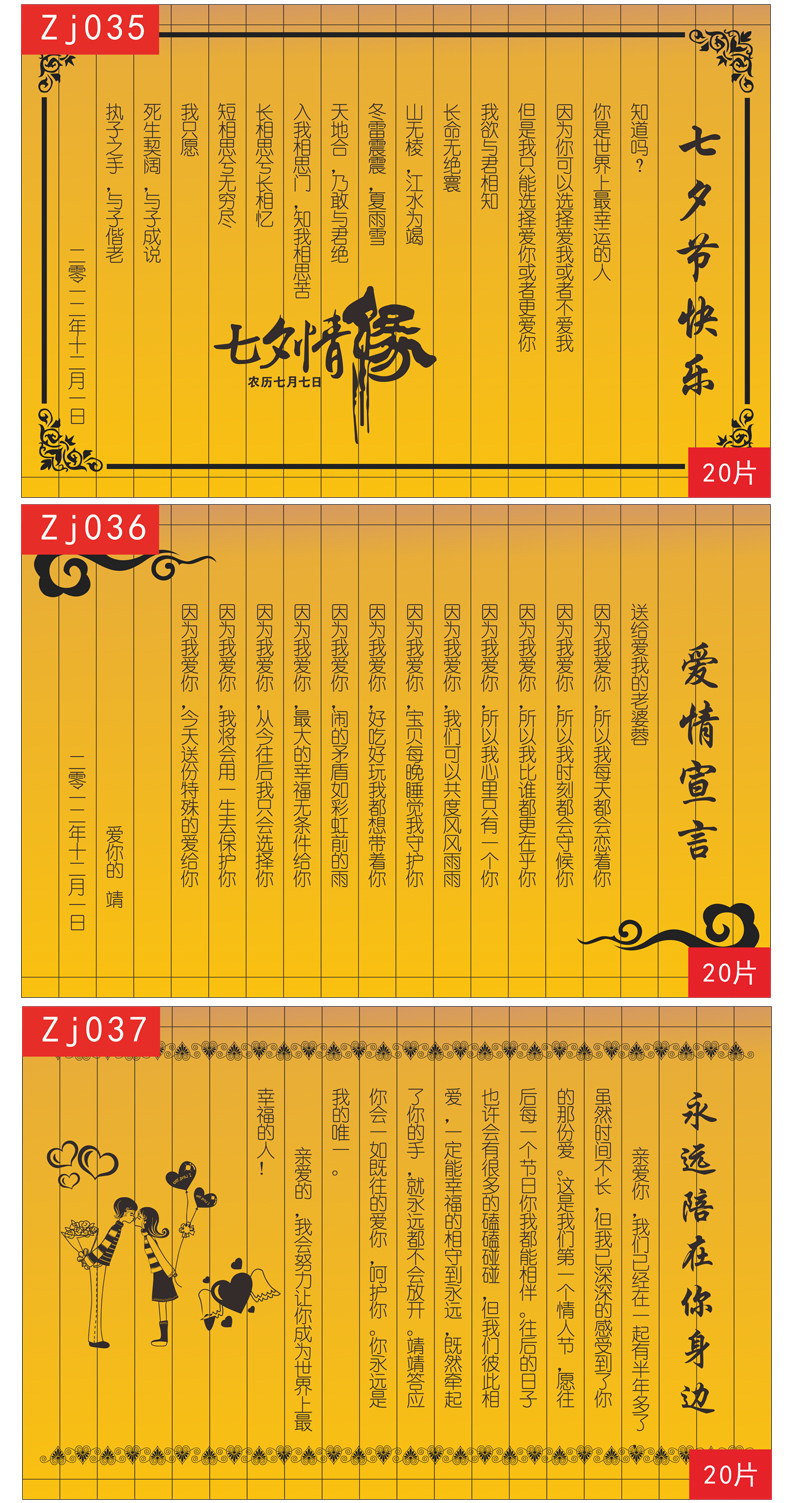 Zj035
七夕节快乐
知道吗？
你是世界上最幸运的人
因为你可以选择爱我或者不爱我
但是我只能选择爱你或者更爱你
我欲与君相知
长命无绝寰
山无棱，江水为竭
冬雷震震，夏雨雪
天地合，乃敢与君绝
入我相思门，知我相思苦
长相思兮长相忆
短相思兮无穷尽
我只愿
死生契阔，与子成说
执子之手，与子偕老
二零一二年十二月一日
七夕情缘
农历七月七日
20片
Zj036
爱情宣言
送给爱我的老婆蓉
因为我爱你，所以我每天都会恋着你
因为我爱你，所以我时刻都会守候你
因为我爱你，所以我比谁都更在乎你
因为我爱你，所以我心里只有一个你
因为我爱你，我们可以共度风风雨雨
因为我爱你，宝贝每晚睡觉我守护你
因为我爱你，好吃好玩我都想带着你
因为我爱你，闹的矛盾如彩虹前的雨
因为我爱你，最大的幸福无条件给你
因为我爱你，从今往后我只会选择你
因为我爱你，我将会用一生去保护你
因为我爱你，今天送份特殊的爱给你
爱你的 靖
二零一二年十二月一日
20片
Zj037
永远陪在你身边
亲爱你，我们已经在一起有半年多了，
虽然时间不长，但我已深深的感受到了你
的那份爱。这是我们第一个情人节，愿往
后每一个节日你我都能相伴。往后的日子
也许会有很多的磕磕碰碰，但我们彼此相
爱，一定能幸福的相守到永远，既然牵起
了你的手，就永远都不会放开。靖靖答应
你会一如既往的爱你，呵护你。你永远是
我的唯一。
亲爱的，我会努力让你成为世界上最
幸福的人！
20片